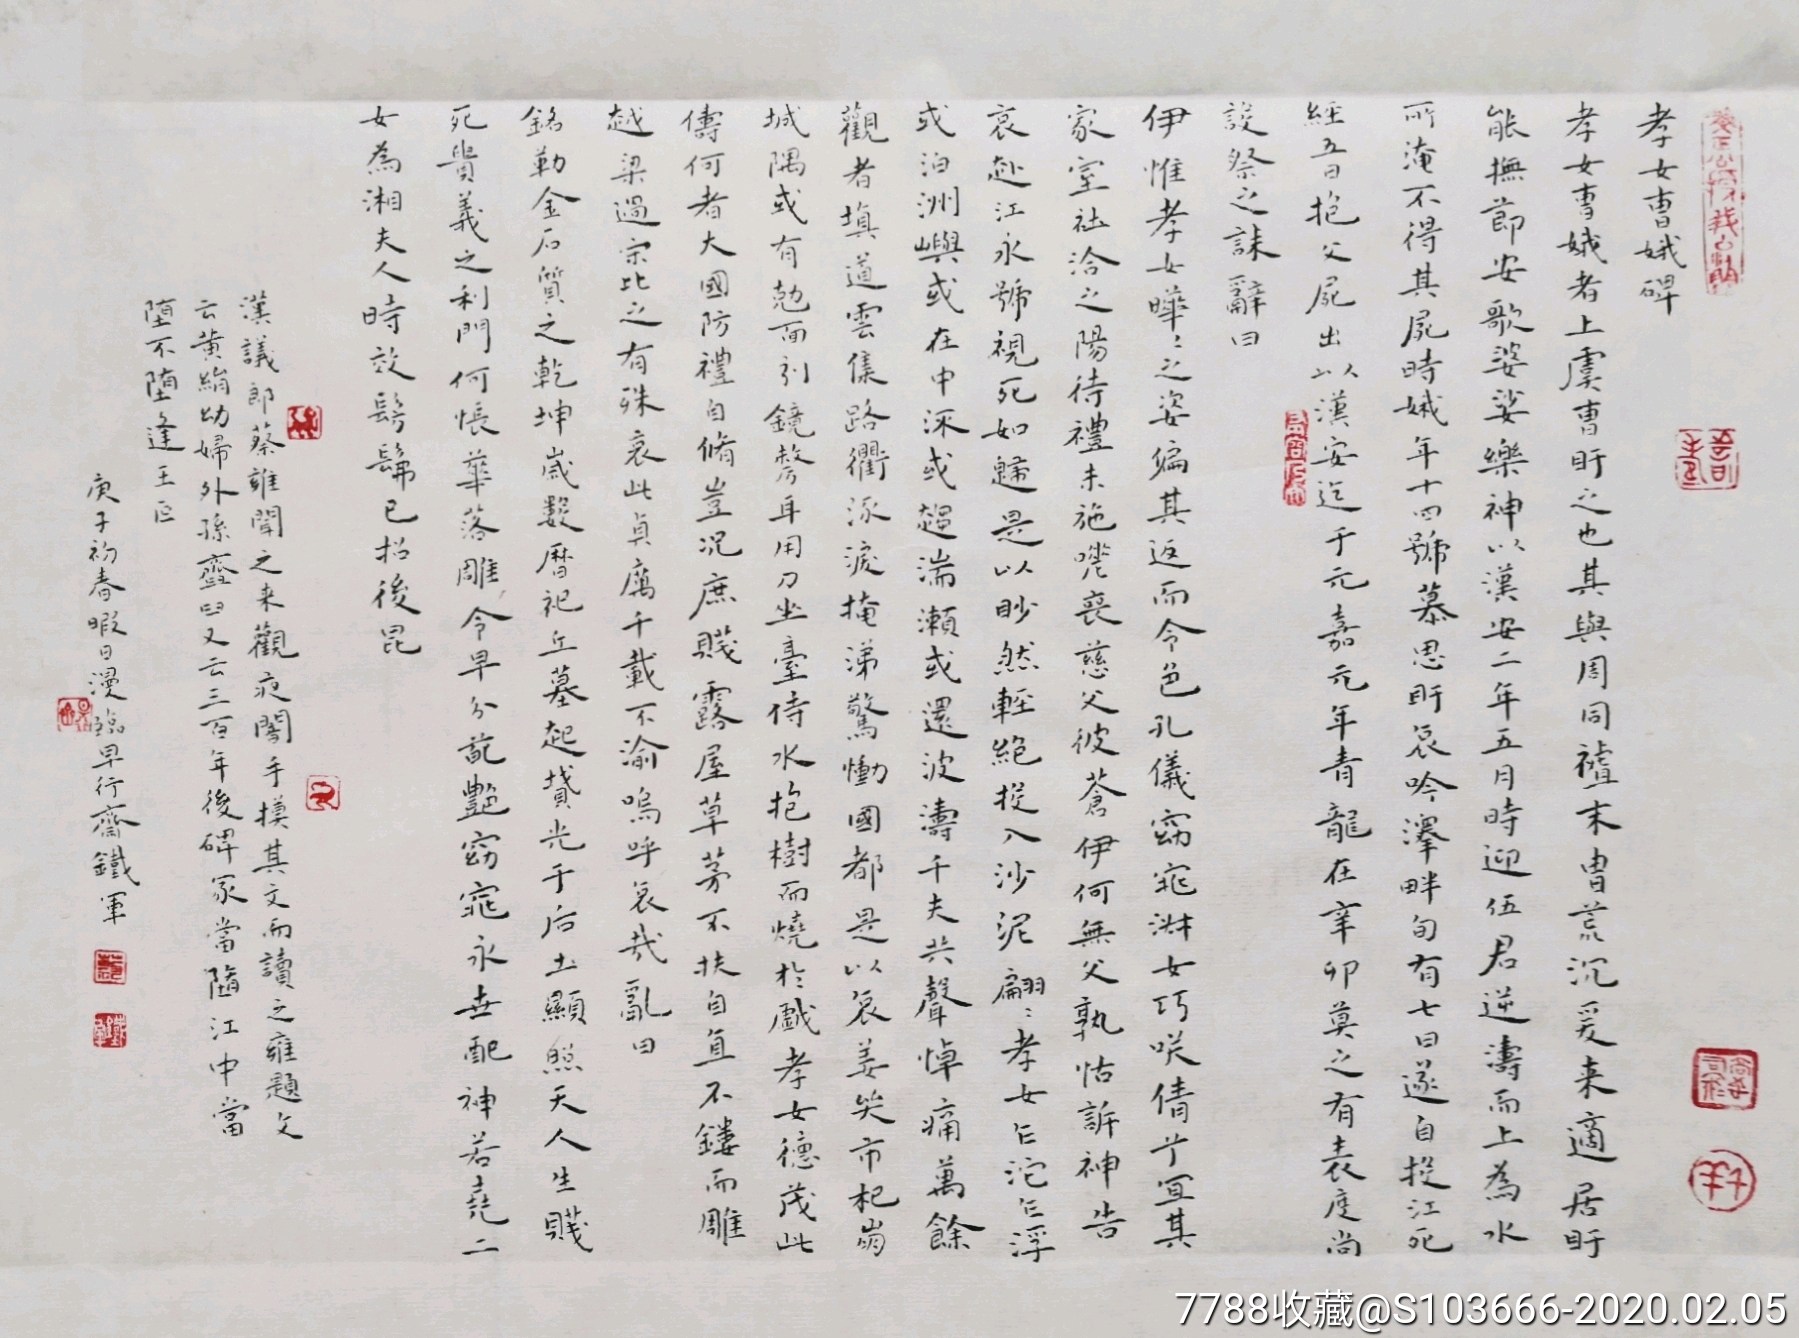 孝女曹娥碑
孝女曹娥者上虞曹盱之也其與周同褅末曹荒沉爰来適居盱
能撫節安歌婆娑樂神以漢安二年五月時迎伍君逆濤而上為水
所淹不得其屍時娥年十四號慕思盱哀吟澤畔旬有七日遂自投江死
經五日抱父屍出以漢安迄于元嘉元年青龍在辛卯莫之有表度尚
設祭之誄辭曰
伊惟孝女曄〻之姿偏其返而令色孔儀窈窕淑女巧咲倩兮宜其
家室在洽之陽待禮未施嗟喪慈父彼蒼伊何無父孰怙訴神告
哀赴江永號視死如歸是以眇然輕絕投入沙泥翩〻孝女乍沱乍浮
或泊洲嶼或在中流或趨湍瀬或還波濤千夫共聲悼痛萬餘
觀者填道雲集路衢泳淚掩涕驚慟國都是以哀姜哭市杞崩
城隅或有尅面引鏡剺耳用刀坐臺待水抱樹而燒於戲孝女德茂此
儔何者大國防禮自脩豈況庶賤露屋草茅不扶自直不鏤而雕
越梁過宗比之有殊哀此貞厲千載不渝嗚呼哀哉亂曰
銘勒金石質之乾坤歲數曆祀丘墓起墳光于后土顯照天人生賤
死貴義之利門何悵華落雕令早分葩艷窈窕永世配神若堯二
女為湘夫人時效髣髴已招後昆
漢議郎蔡雍聞之来觀夜闇手摸其文而讀之雍題文
云黃絹幼婦外孫齏臼又云三百年後碑冢當隨江中當
堕不堕逢王叵
庚子初春暇日漫臨早行齋鐵軍
7788收藏@S103666-2020.02.05